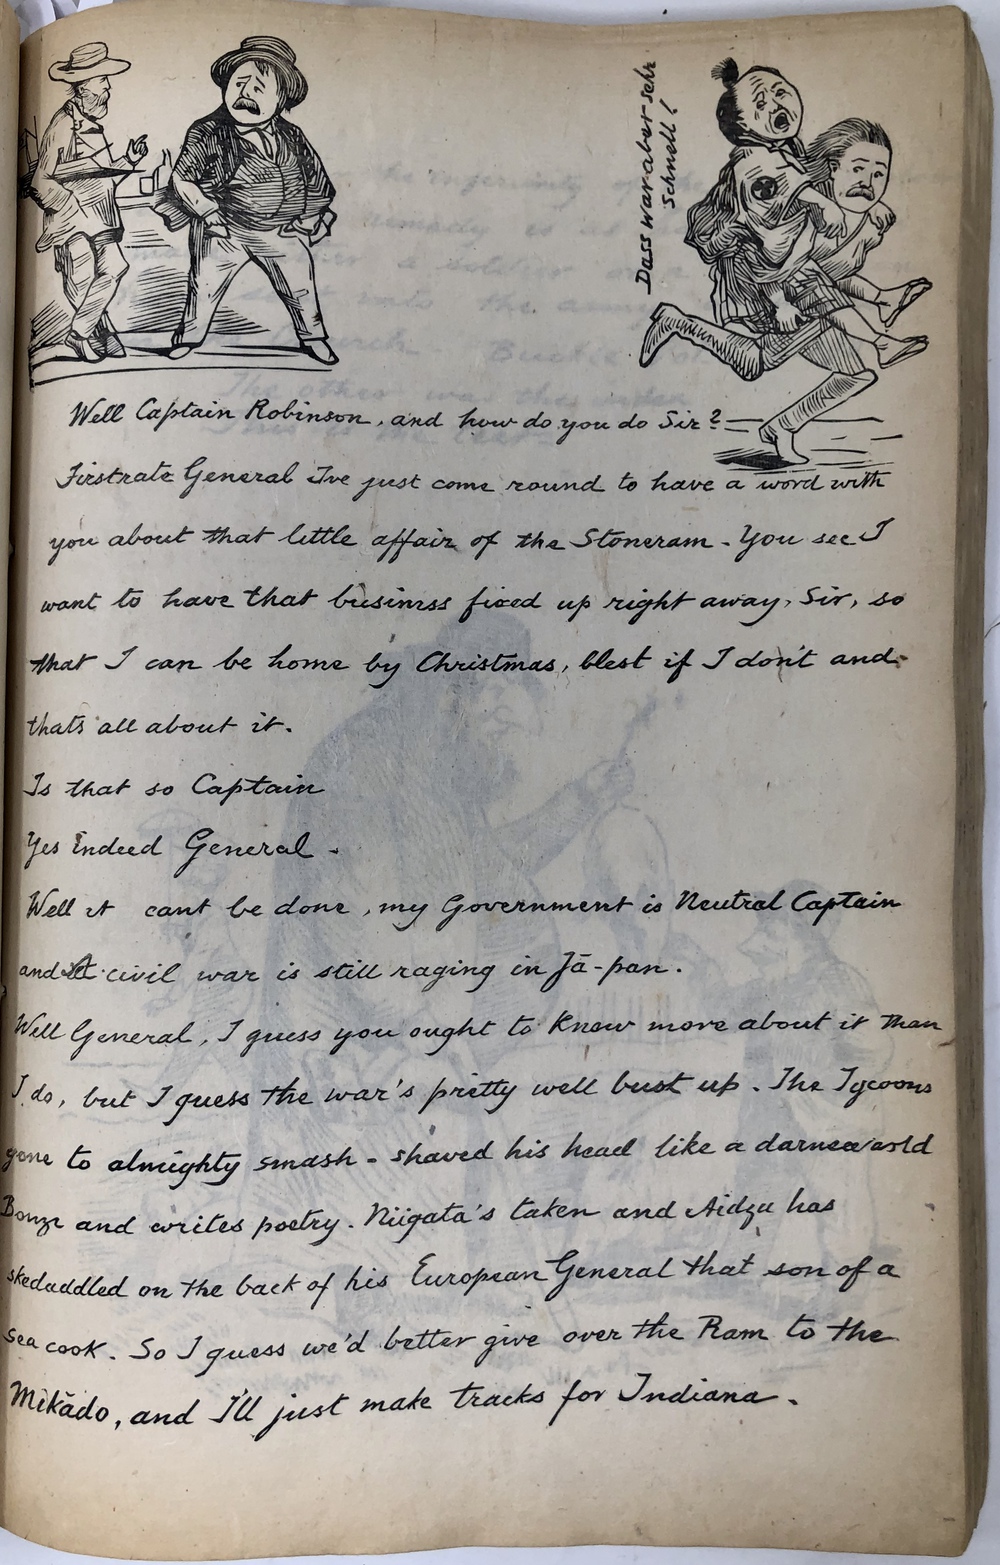 Dass war aber sehr
schnell!
Well Captain Robinson, and how do you do Sir?
Firstrate General I've just come round to have a word with
you about that little affair of the Stoneram - You see I
want to have that business fixed up right away, Sir, so
that I can be home by Christmas, blest if I don't and
thats all about it.
Is that so Captain
Yes indeed General -
Well it cant be done, my Government is Neutral Captain
and civil war is still raging in Jā-pan.
Well General, I guess you ought to know more about it than
I do, but I guess the war's pretty well bust up. The Tycoons
gone to almighty smash - shaved his head like a darned old
Bonze and writes poetry. Niigata's taken and Aidzu has
skedaddled on the back of his European General that son of a
sea cook. So I guess we'd better give over the Ram to the
Mikādo, and I'll just make tracks for Indiana.